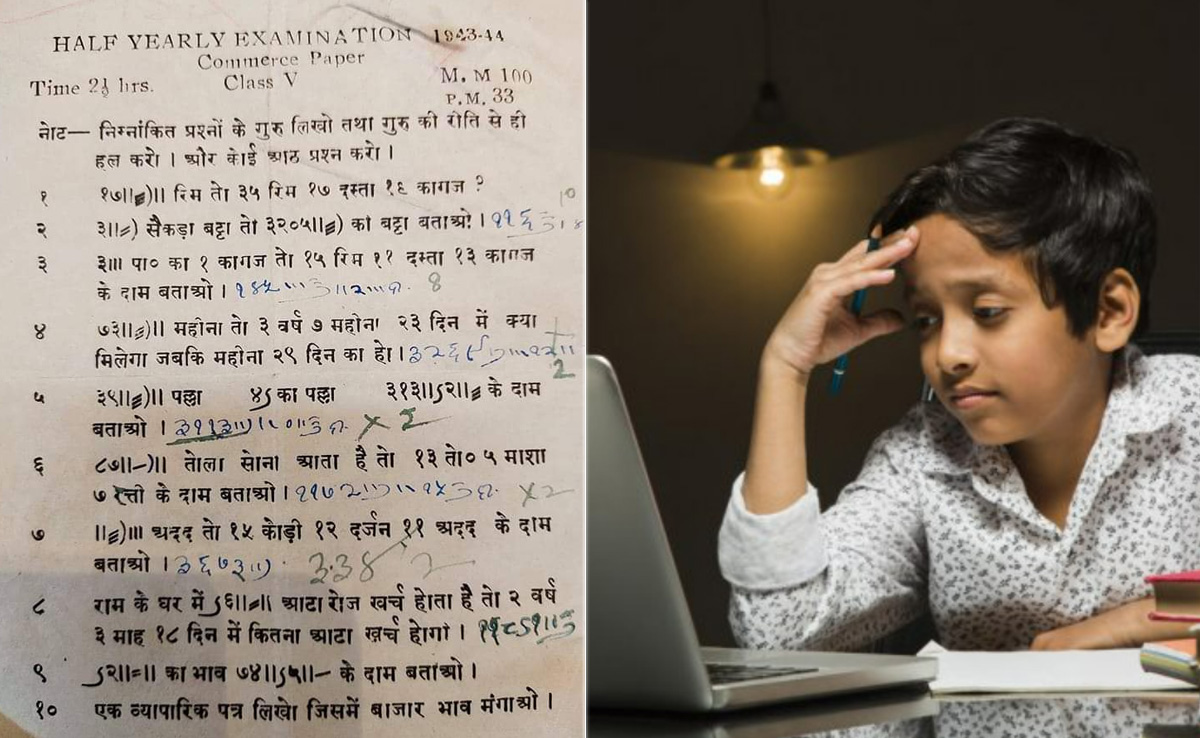 HALF YEARLY EXAMINATION 1943-44
Commerce Paper
Time 2½ hrs. Class V M. M 100
P.M. 33
नोट— निम्नांकित प्रश्नों के गुरु लिखो तथा गुरु की रीति से ही
हल करो । और कोई आठ प्रश्न करो ।
१ १७॥≡)॥ रिम तो ३५ रिम १७ दस्ता १६ कागज ?
२ ३॥=) सैकड़ा बट्टा तो ३२०५॥≡) का बट्टा बताओ !
३ ३॥। पा० का १ कागज तो १५ रिम ११ दस्ता १३ कागज
के दाम बताओ ।
४ ७३॥=)॥ महीना तो ३ वर्ष ७ महीना २३ दिन में क्या
मिलेगा जबकि महीना २९ दिन का हो ।
५ ३९॥≡)॥ पल्ला ४ऽ का पल्ला ३१३॥ऽ२॥≡ के दाम
बताओ ।
६ ८७॥-)॥ तोला सोना आता है तो १३ तो० ५ माशा
७ रत्ती के दाम बताओ ।
७ ॥≡)॥। अदद तो १५ कोड़ी १२ दर्जन ११ अदद के दाम
बताओ ।
८ राम के घर में ऽ६॥≡॥ आटा रोज खर्च होता है तो २ वर्ष
३ माह १८ दिन में कितना आटा खर्च होगा ।
९ ऽ२॥=॥ का भाव ७४॥ऽ५॥- के दाम बताओ ।
१० एक व्यापारिक पत्र लिखो जिसमें बाजार भाव मंगाओ ।